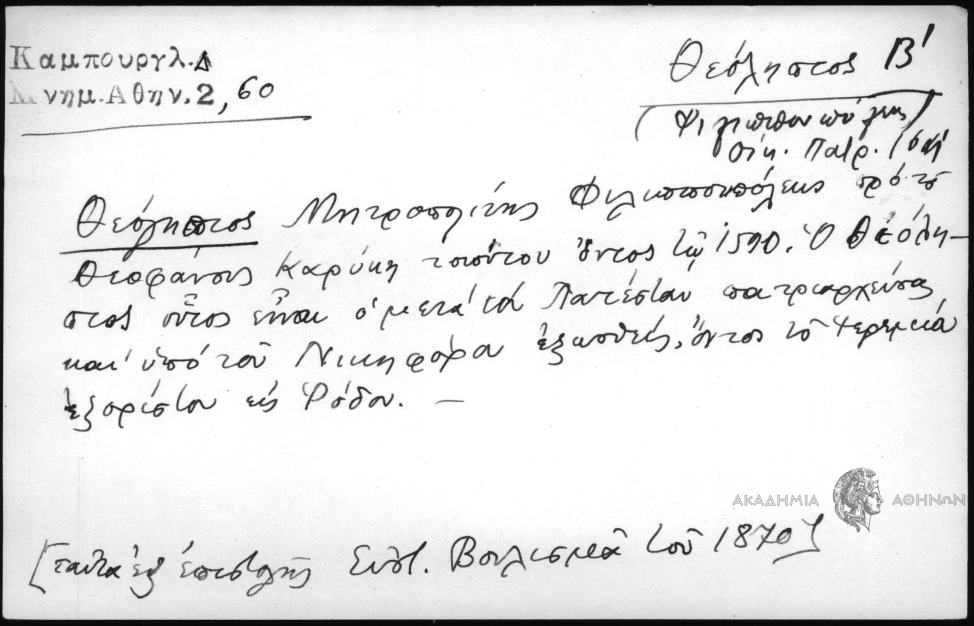 Καμπουργλ. Δ
Μνημ. Αθην. 2, 60
Θεόληπτος Β'
(Φιλιππουπόλεως)
Οἰκ. Πατρ.
Θεόληπτος Μητροπολίτης Φιλιππουπόλεως πρὸ τοῦ
Θεοφάνους Καρύκη τοιούτου ὄντος τῷ 1590. Ὁ Θεόλη-
πτος οὗτος εἶναι ὁ μετὰ τὸν Παχώμιον πατριαρχεύσας
καὶ ὑπὸ τοῦ Νικηφόρου ἐξωσθείς, ὄντος τοῦ Ἱερεμία
ἐξορίστου εἰς Ῥόδον. —
ΑΚΑΔΗΜΙΑ ΑΘΗΝΩΝ
[ταῦτα ἐξ ἐπιστολῆς Εὐστ. Βουλισμᾶ τοῦ 1870]